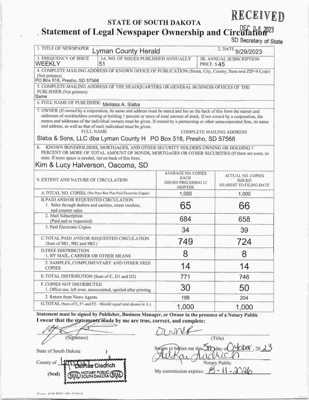 RECEIVED
DEC 08 2023
SD Secretary of State
STATE OF SOUTH DAKOTA
Statement of Legal Newspaper Ownership and Circulation
1. TITLE OF NEWSPAPER Lyman County Herald
2. DATE 9/29/2023
3. FREQUENCY OF ISSUE
WEEKLY
3A. NO. OF ISSUES PUBLISHED ANNUALLY
51
3B. ANNUAL SUBSCRIPTION
PRICE $45
4. COMPLETE MAILING ADDRESS OF KNOWN OFFICE OF PUBLICATION (Street, City, County, State and ZIP+4 Code)
(Not printers)
PO Box 518, Presho, SD 57568
5. COMPLETE MAILING ADDRESS OF THE HEADQUARTERS OR GENERAL BUSINESS OFFICES OF THE
PUBLISHER (Not printers)
Same
6. FULL NAME OF PUBLISHER: Melissa A. Slaba
7. OWNER (If owned by a corporation, its name and address must be stated and also on the back of this form the names and
addresses of stockholders owning or holding 1 percent or more of total amount of stock. If not owned by a corporation, the
names and addresses of the individual owners must be given. If owned by a partnership or other unincorporated firm, its name
and address, as well as that of each individual must be given.
FULL NAME
COMPLETE MAILING ADDRESS
Slaba & Sons, LLC dba Lyman County H
PO Box 518, Presho, SD 57568
8. KNOWN BONDHOLDERS, MORTGAGES, AND OTHER SECURITY HOLDERS OWNING OR HOLDING 1
PERCENT OR MORE OF TOTAL AMOUNT OF BONDS, MORTGAGES OR OTHER SECURITIES (If there are none, so
state. If more space is needed, list on back of this form.
Kim & Lucy Halverson, Oacoma, SD
9. EXTENT AND NATURE OF CIRCULATION
AVERAGE NO. COPIES
EACH
ISSUED PRECEDING 12
MONTHS
ACTUAL NO. COPIES
ISSUED
NEAREST TO FILING DATE
A. TOTAL NO. COPIES (Net Press Run Plus Paid Electronic Copies) 1,000 1,000
B. PAID AND/OR REQUESTED CIRCULATION
1. Sales through dealers and carriers, street vendors,
and counter sales 65 66
2. Mail Subscription
(Paid and or requested) 684 658
3. Paid Electronic Copies 34 39
C. TOTAL PAID AND/OR REQUESTED CIRCULATION
(Sum of 9B1, 9B2 and 9B3.) 749 724
D. FREE DISTRIBUTION
1. BY MAIL, CARRIER OR OTHER MEANS 8 8
2. SAMPLES, COMPLIMENTARY AND OTHER FREE
COPIES 14 14
E. TOTAL DISTRIBUTION (Sum of C, D1 and D2) 771 746
F. COPIES NOT DISTRIBUTED
1. Office use, left over, unaccounted, spoiled after printing 30 50
2. Return from News Agents 199 204
G. TOTAL (Sum of E, F1 and F2 - Should equal total shown in A.) 1,000 1,000
Statement must be signed by Publisher, Business Manager, or Owner in the presence of a Notary Public
I swear that the statements made by me are true, correct, and complete:
Owner
(Signature)
(Title)
State of South Dakota
Sworn to before me this day of October 23
County of
Notary Public
(Seal)
NOTARY PUBLIC
SOUTH DAKOTA
My commission expires: 8-11-2026